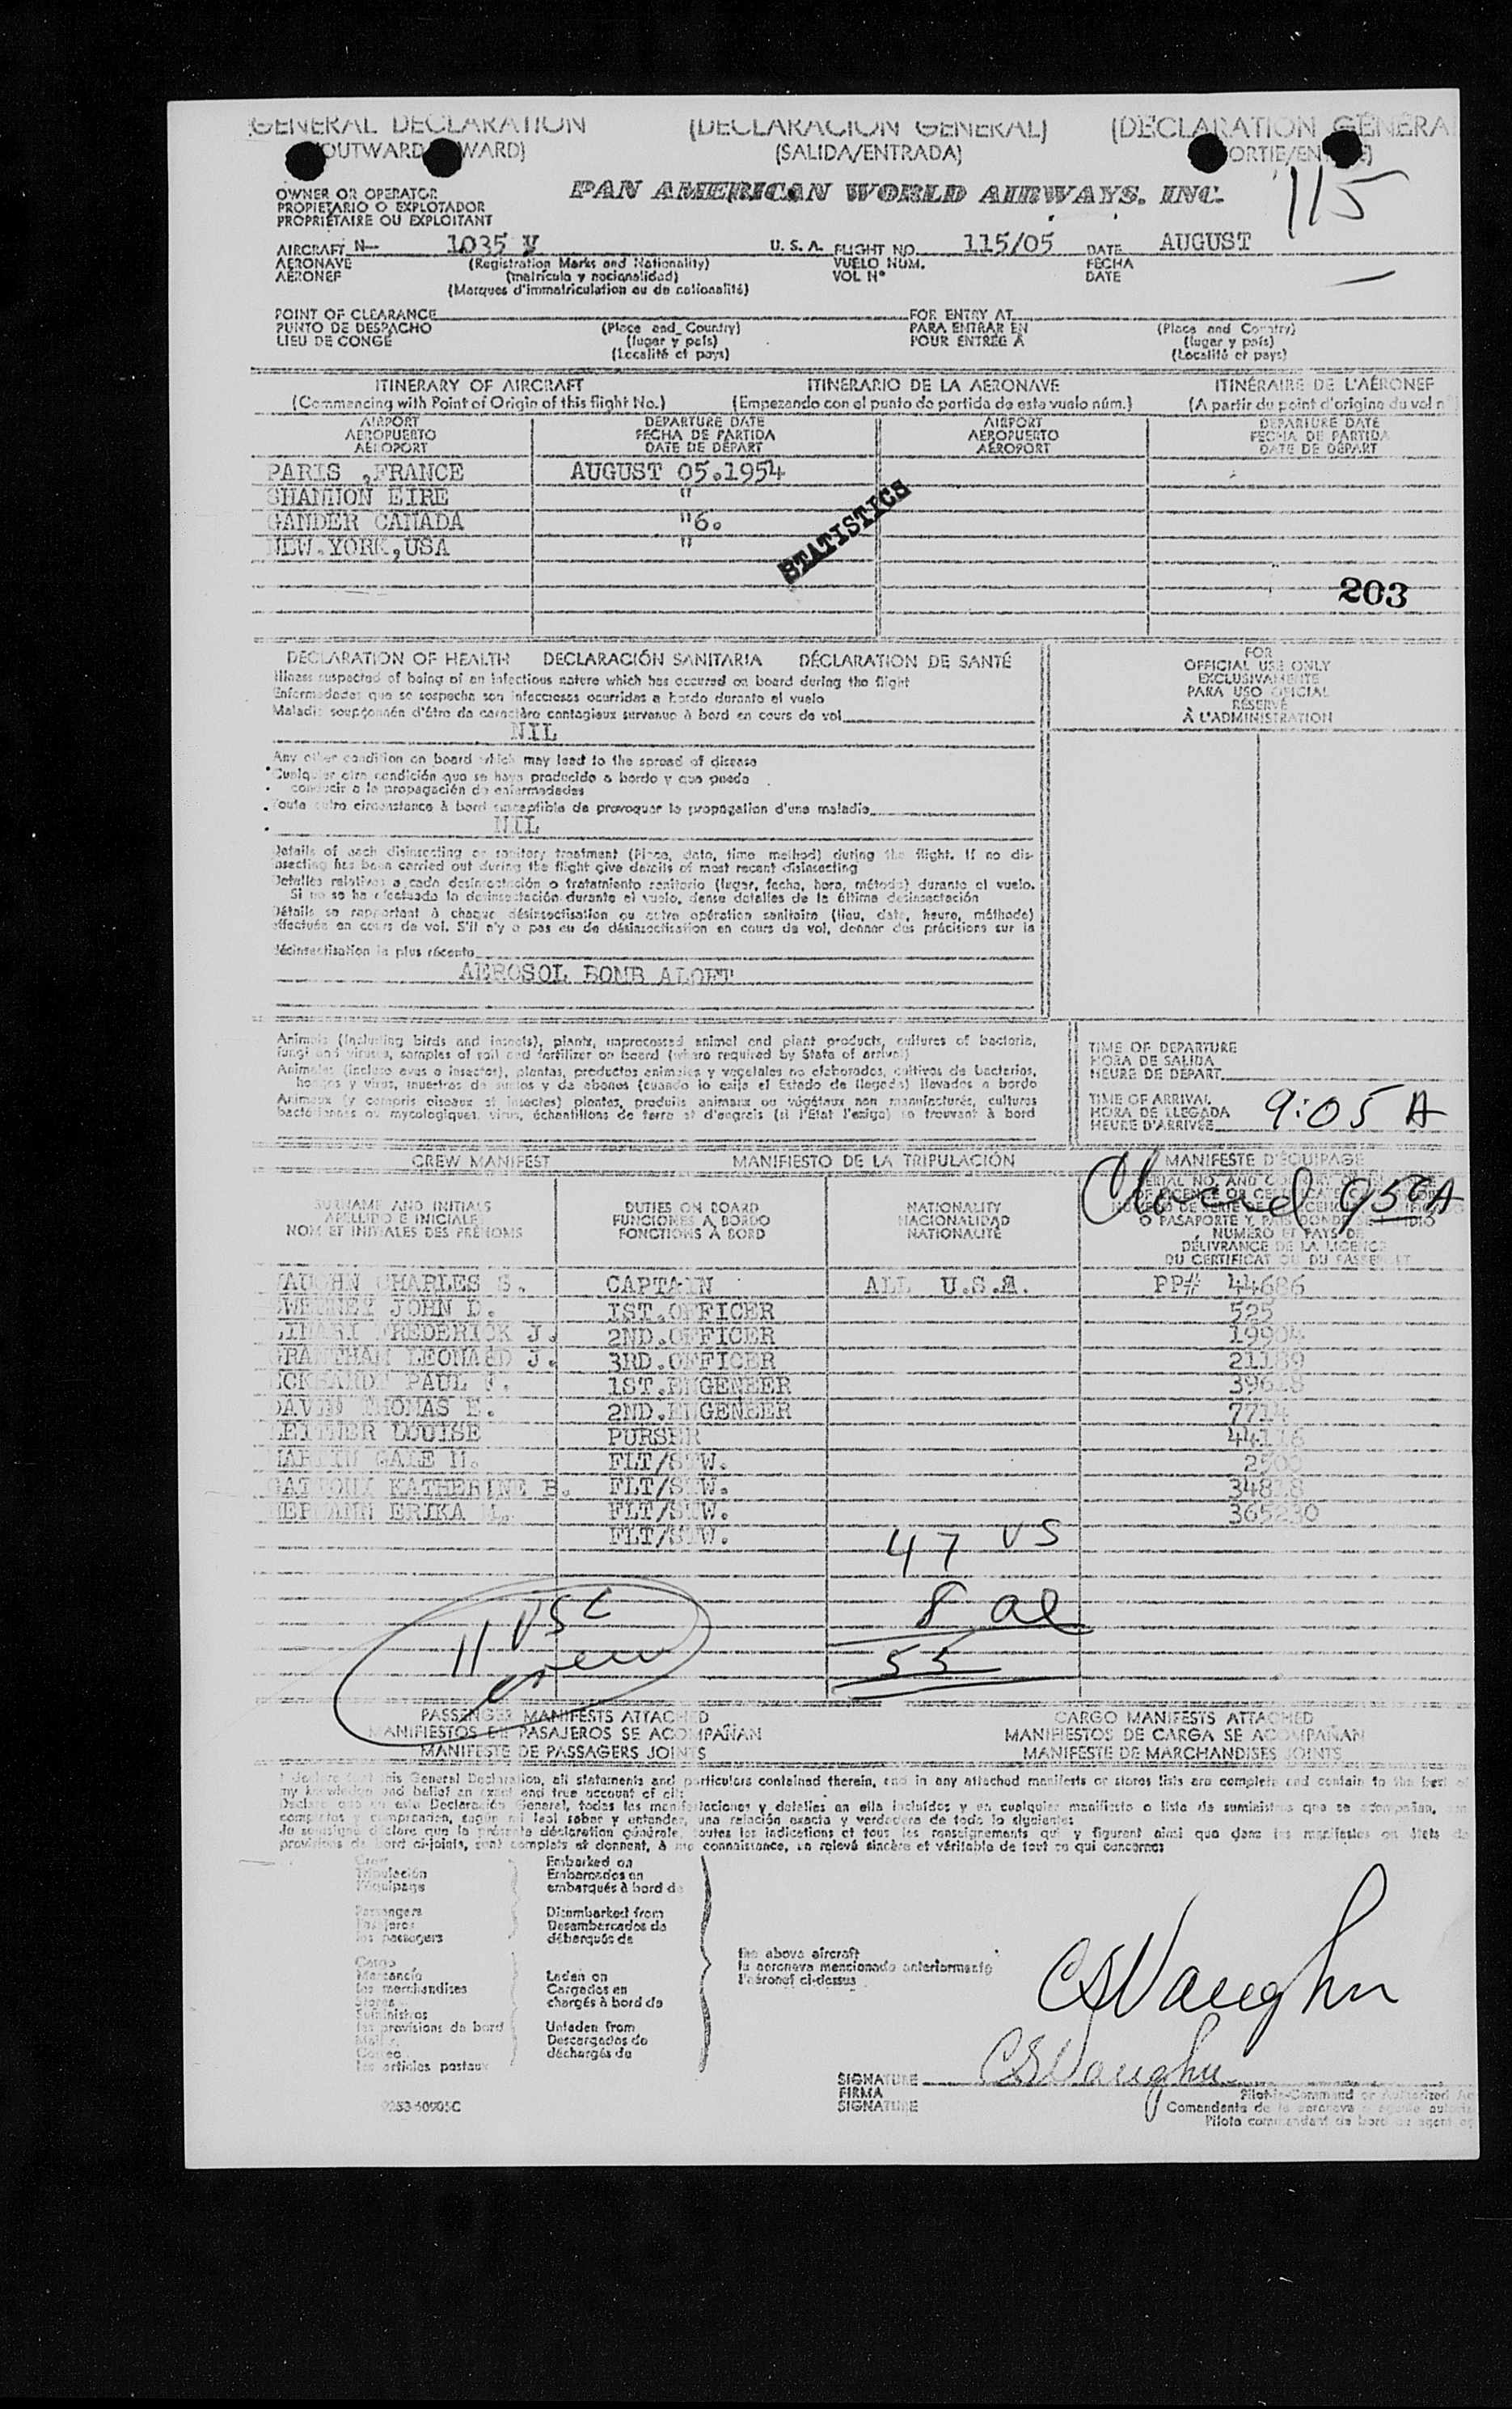 GENERAL DECLARATION (DECLARACION GENERAL) (DECLARATION GENERA
(OUTWARD WARD) (SALIDA/ENTRADA) ORTIE/EN E)
OWNER OR OPERATOR PAN AMERICAN WORLD AIRWAYS, INC.
PROPIETARIO O EXPLOTADOR
PROPRIÉTAIRE OU EXPLOITANT
115
AIRCRAFT N- 1035 V U. S. A. FLIGHT NO. 115/05 DATE AUGUST
AÉRONAVE (Registration Marks and Nationality) VUELO NÚM. FECHA
AÉRONEF (matrícula y nacionalidad) VOL Nº DATE
(Marques d'immatriculation ou de nationalité)
POINT OF CLEARANCE FOR ENTRY AT
PUNTO DE DESPACHO (Place and Country) PARA ENTRAR EN (Place and Country)
LIEU DE CONGÉ (lugar y país) POUR ENTRÉE À (lugar y país)
(Localité et pays) (Localité et pays)
ITINERARY OF AIRCRAFT ITINERARIO DE LA AERONAVE ITINÉRAIRE DE L'AÉRONEF
(Commencing with Point of Origin of this flight No.) (Empezando con el punto de partida de este vuelo núm.) (A partir du point d'origine du vol n
AIRPORT DEPARTURE DATE AIRPORT DEPARTURE DATE
AEROPUERTO FECHA DE PARTIDA AEROPUERTO FECHA DE PARTIDA
AÉROPORT DATE DE DÉPART AÉROPORT DATE DE DÉPART
PARIS ,FRANCE AUGUST 05.1954
SHANNON EIRE "
GANDER CANADA "6.
NEW.YORK,USA "
STATISTICS
203
DECLARATION OF HEALTH DECLARACIÓN SANITARIA DÉCLARATION DE SANTÉ
FOR
OFFICIAL USE ONLY
EXCLUSIVAMENTE
PARA USO OFICIAL
RÉSERVÉ
À L'ADMINISTRATION
Illness suspected of being of an infectious nature which has occured on board during the flight
Enfermedades que se sospecha son infecciosas ocurridas a bordo durante el vuelo
Maladie soupçonnée d'être de caractère contagieux survenue à bord en cours de vol
NIL
Any other condition on board which may lead to the spread of disease
Cualquier otra condición que se haya producido a bordo y que pueda
conducir a la propagación de enfermedades
Toute autre circonstance à bord susceptible de provoquer la propagation d'une maladie
NIL
Details of each disinsecting or sanitary treatment (Place, date, time method) during the flight. If no dis-
insecting has been carried out during the flight give details of most recent disinsecting
Detalles relativos a cada desinsectación o tratamiento sanitario (lugar, fecha, hora, método) durante el vuelo.
Si no se ha efectuado la desinsectación durante el vuelo, dense detalles de la última desinsectación
Détails se rapportant à chaque désinsectisation ou autre opération sanitaire (lieu, date, heure, méthode)
effectuée en cours de vol. S'il n'y a pas eu de désinsectisation en cours de vol, donner des précisions sur la
désinsectisation la plus récente
AEROSOL BOMB ALOFT
Animals (including birds and insects), plants, unprocessed animal and plant products, cultures of bacteria,
fungi and viruses, samples of soil and fertilizer on board (where required by State of arrival)
Animales (incluso aves o insectos), plantas, productos animales y vegetales no elaborados, cultivos de bacterias,
hongos y virus, muestras de suelos y de abonos (cuando lo exija el Estado de llegada) llevados a bordo
Animaux (y compris oiseaux et insectes) plantes, produits animaux ou végétaux non manufacturés, cultures
bactériennes ou mycologiques, virus, échantillons de terre et d'engrais (si l'État l'exige) se trouvant à bord
TIME OF DEPARTURE
HORA DE SALIDA
HEURE DE DÉPART
TIME OF ARRIVAL
HORA DE LLEGADA 9:05 A
HEURE D'ARRIVÉE
CREW MANIFEST MANIFIESTO DE LA TRIPULACIÓN MANIFESTE D'ÉQUIPAGE
SURNAME AND INITIALS DUTIES ON BOARD NATIONALITY
APELLIDO E INICIALES FUNCIONES A BORDO NACIONALIDAD
NOM ET INITIALES DES PRÉNOMS FONCTIONS À BORD NATIONALITÉ
O PASAPORTE Y PAÍS DONDE SE EXPIDIÓ
NUMÉRO ET PAYS DE
DÉLIVRANCE DE LA LICENCE
DU CERTIFICAT OU DU PASSEPORT
VAUGHN CHARLES S. CAPTAIN ALL U.S.A. PP# 44686
SWEENEY JOHN D. 1ST.OFFICER 525
FREDERICK J. 2ND.OFFICER 19904
GRANTHAM LEONARD J. 3RD.OFFICER 21189
PAUL 1ST.ENGENEER
DAVID THOMAS E. 2ND.ENGENEER
LOUISE PURSER
MARTIN GALE FLT/STW.
KATHERINE B. FLT/STW.
HERMANN ERIKA FLT/STW.
FLT/STW.
47 US
8 al
55
11 USC
crew
PASSENGER MANIFESTS ATTACHED CARGO MANIFESTS ATTACHED
MANIFIESTOS DE PASAJEROS SE ACOMPAÑAN MANIFIESTOS DE CARGA SE ACOMPAÑAN
MANIFESTE DE PASSAGERS JOINTS MANIFESTE DE MARCHANDISES JOINTS
I declare that this General Declaration, all statements and particulars contained therein, and in any attached manifests or stores lists are complete and contain to the best of
my knowledge and belief an exact and true account of all:
Declaro que en esta Declaración General, todas las manifestaciones y detalles en ella incluídos y en cualquier manifiesto o lista de suministros que se acompañan, son
completos y comprenden, según mi leal saber y entender, una relación exacta y verdadera de todo lo siguiente:
Je soussigné déclare que la présente déclaration générale, toutes les indications et tous les renseignements qui y figurent ainsi que dans les manifestes ou états de
provisions de bord ci-joints, sont complets et donnent, à ma connaissance, un relevé sincère et véritable de tout ce qui concerne:
Crew Embarked on
Tripulación Embarcados en
l'équipage embarqués à bord de
Passengers Disembarked from
Pasajeros Desembarcados de
les passagers débarqués de
the above aircraft
la aeronave mencionada anteriormente
l'aéronef ci-dessus
Cargo
Mercancía Laden on
les marchandises Cargados en
Stores chargés à bord de
Suministros
les provisions de bord Unladen from
Mail Descargados de
Correo déchargés de
les articles postaux
CSVaughn
SIGNATURE CSVaughn
FIRMA Pilot-in-Command or Authorized Ag
SIGNATURE Comandante de la aeronave o agente autoriz
Pilote commandant de bord ou agent